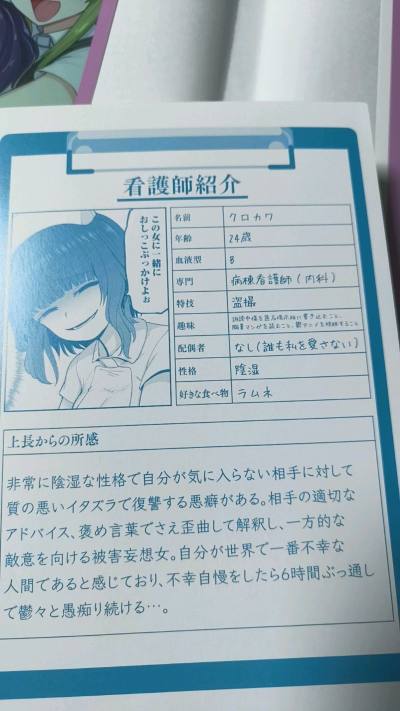 看護師紹介
この女に一緒に
おしっこぶっかけよぉ
名前 クロカワ
年齢 24歳
血液型 B
専門 病棟看護師(内科)
特技 盗撮
趣味
配偶者 なし(誰も私を愛さない)
性格 陰湿
好きな食べ物 ラムネ
上長からの所感
非常に陰湿な性格で自分が気に入らない相手に対して
質の悪いイタズラで復讐する悪癖がある。相手の適切な
アドバイス、褒め言葉でさえ歪曲して解釈し、一方的な
敵意を向ける被害妄想女。自分が世界で一番不幸な
人間であると感じており、不幸自慢をしたら6時間ぶっ通し
で鬱々と愚痴り続ける…。